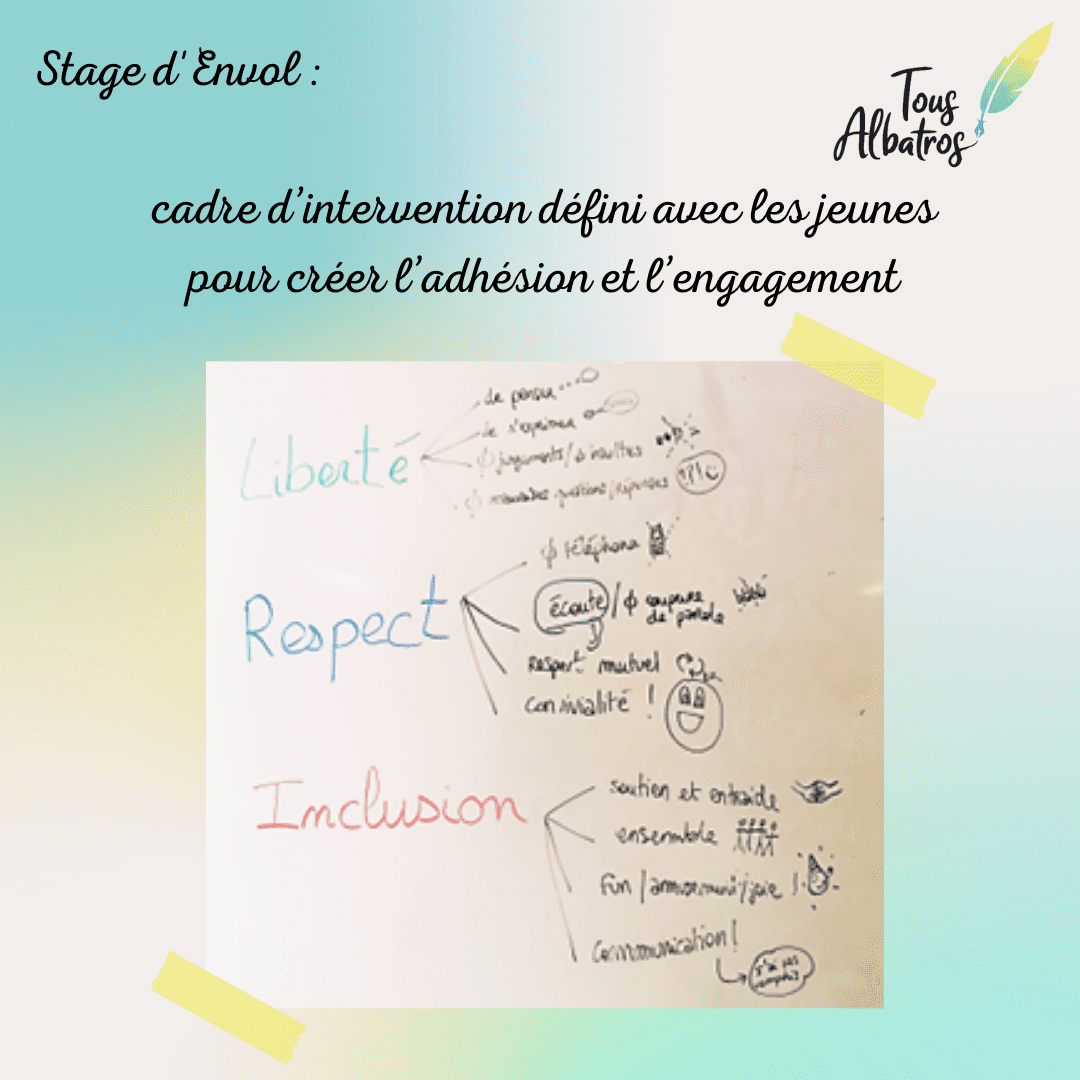 Stage d'Envol :
Tous
Albatros
cadre d'intervention défini avec les jeunes
pour créer l'adhésion et l'engagement
Liberté
de penser
de s'exprimer
ϕ jugements / ϕ insultes
ϕ mauvaises questions / réponses
Respect
ϕ téléphone
écoute / ϕ coupure
de parole
respect mutuel
convivialité !
Inclusion
soutien et entraide
ensemble
Fun / / joie !
Communication !
j'ai pas
compris